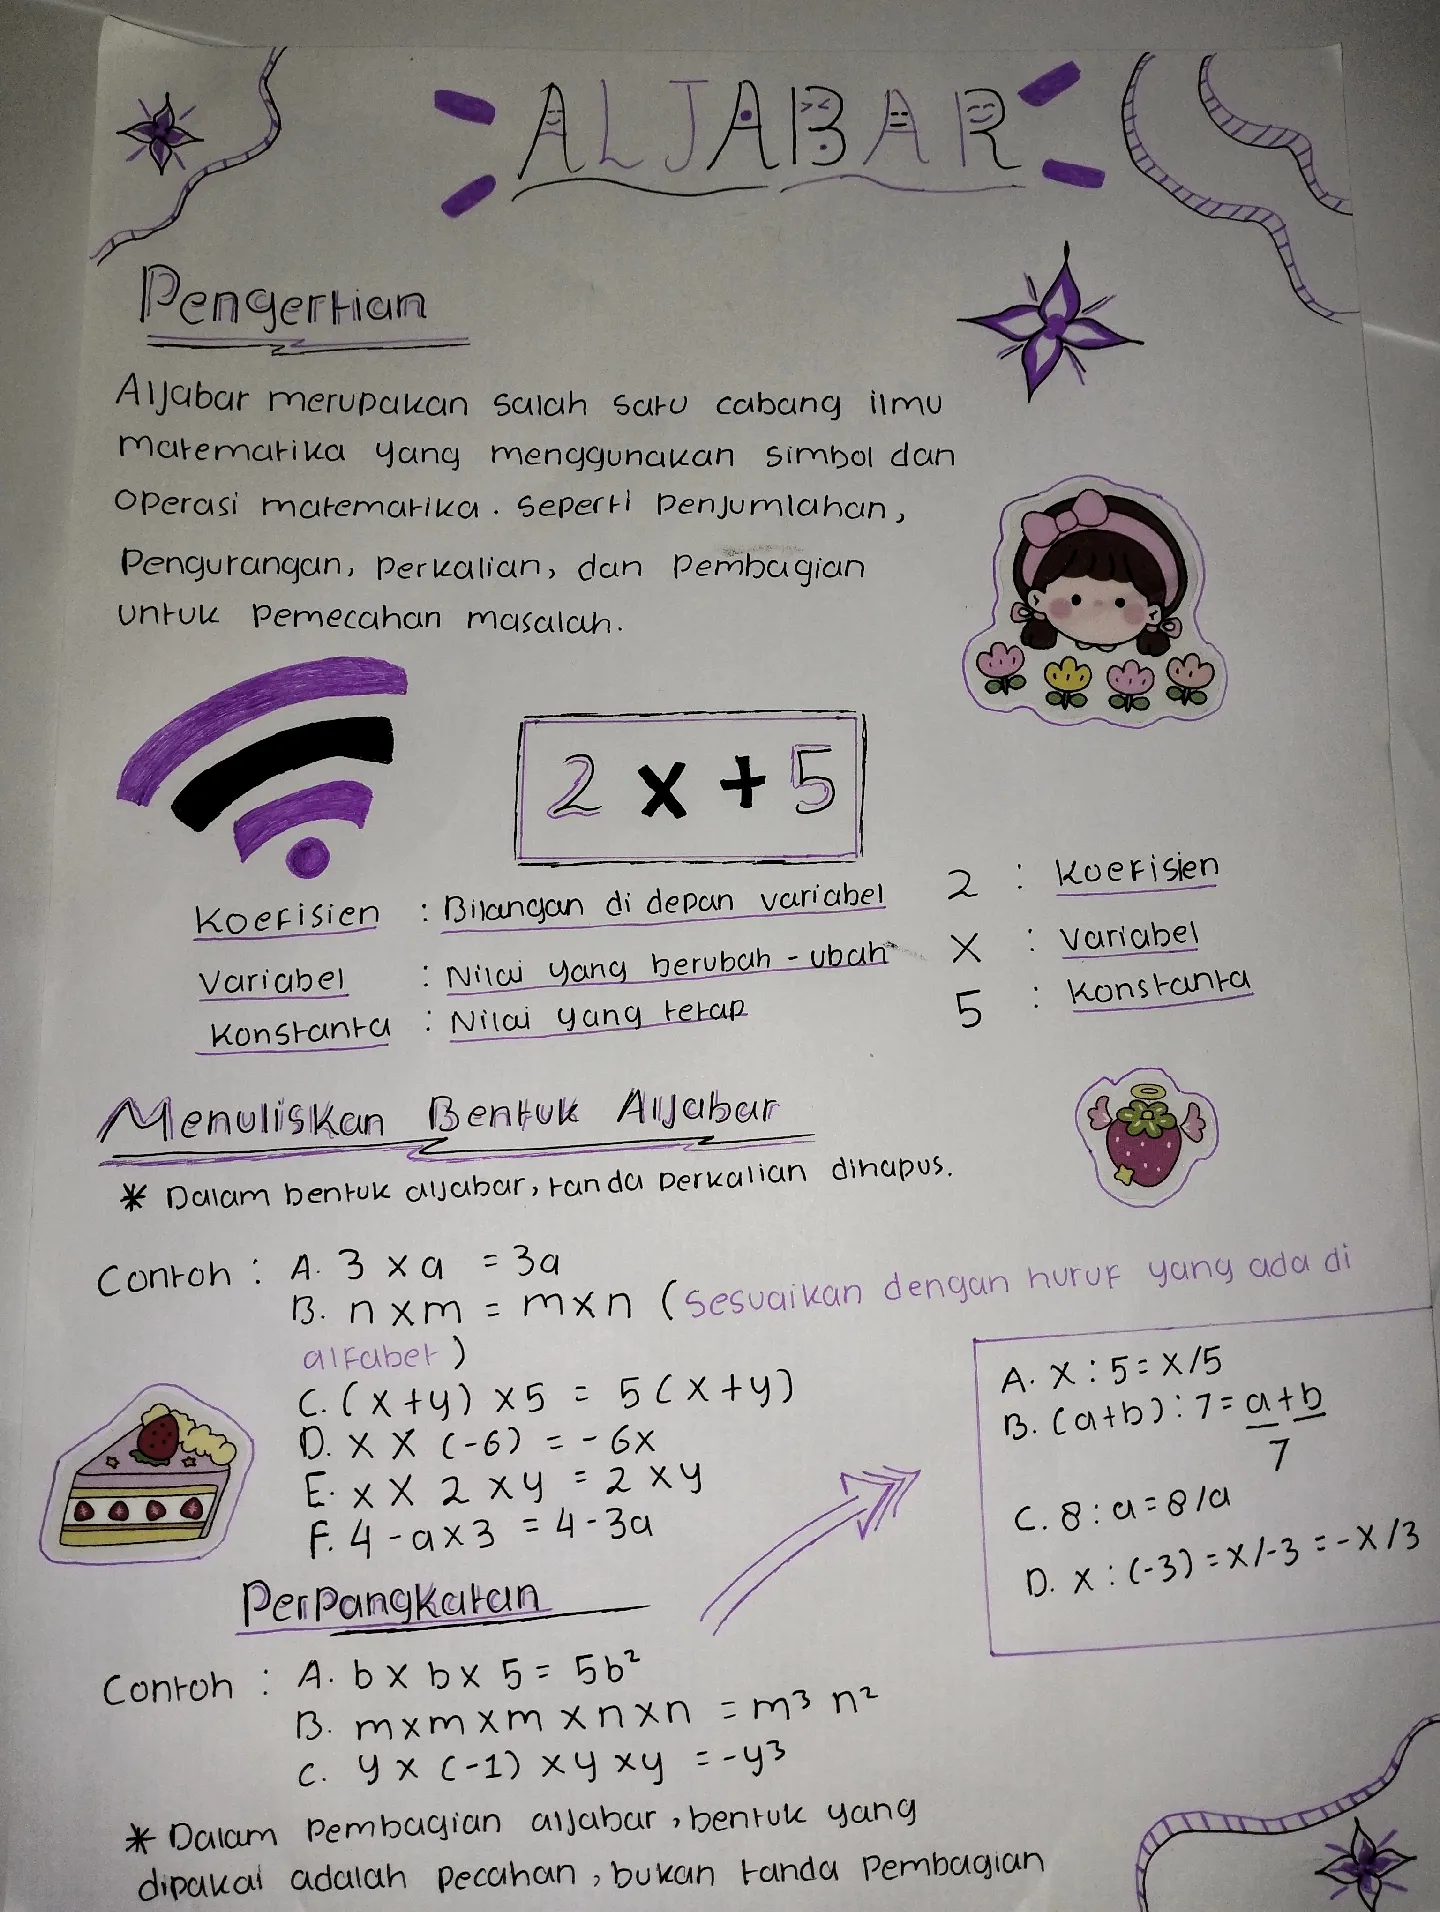 ALJABAR
Pengertian
Aljabar merupakan salah satu cabang ilmu
matematika yang menggunakan simbol dan
operasi matematika. seperti penjumlahan,
Pengurangan, perkalian, dan pembagian
untuk pemecahan masalah.
2 x + 5
Koefisien : Bilangan di depan variabel
Variabel : Nilai yang berubah - ubah
Konstanta : Nilai yang tetap
2 : Koefisien
x : Variabel
5 : Konstanta
Menuliskan Bentuk Aljabar
* Dalam bentuk aljabar, tanda perkalian dihapus.
Contoh : A. 3 x a = 3a
B. n x m = m x n (sesuaikan dengan huruf yang ada di
alfabet)
C. (x+y) x 5 = 5(x+y)
D. x X (-6) = -6x
E. x X 2 x y = 2 xy
F. 4 - a x 3 = 4 - 3a
A. x : 5 = x/5
B. (a+b) : 7 = a+b
7
C. 8 : a = 8/a
D. x : (-3) = x/-3 = -x/3
Perpangkatan
Contoh : A. b x b x 5 = 5b²
B. m x m x m x n x n = m³ n²
C. y x (-1) x y x y = -y³
* Dalam pembagian aljabar, bentuk yang
dipakai adalah pecahan, bukan tanda pembagian